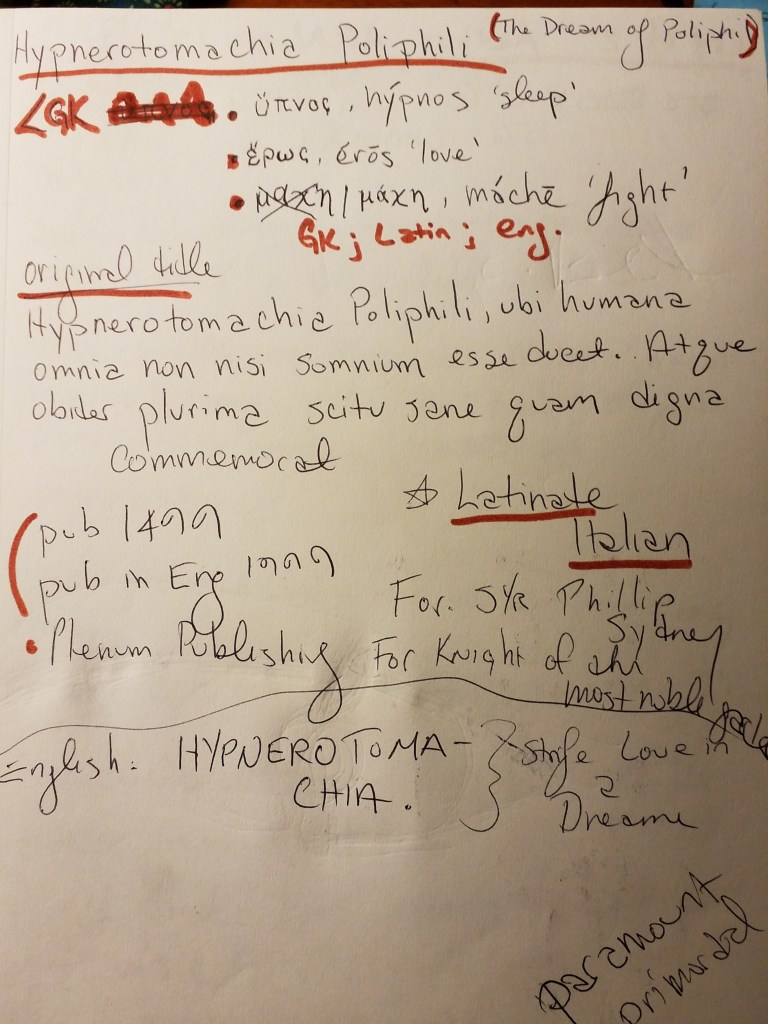 Hypnerotomachia Poliphili (The Dream of Poliphil)
<GK • ὕπνος, hýpnos 'sleep'
• ἔρως, érōs 'love'
• μαχη / μάχη, máchē 'fight'
GK; Latin; eng.
original title
Hypnerotomachia Poliphili, ubi humana
omnia non nisi somnium esse docet. Atque
obider plurima scitu sane quam digna
commemorat
(pub 1499
pub in Eng 1999
• Plenum Publishing
☆ Latinate
Italian
For. SYR Phillip
Sydney
For Knight of
most noble
English: HYPNEROTOMA-
CHIA.
} Strife Love in
a
Dreame
paramount
primordal